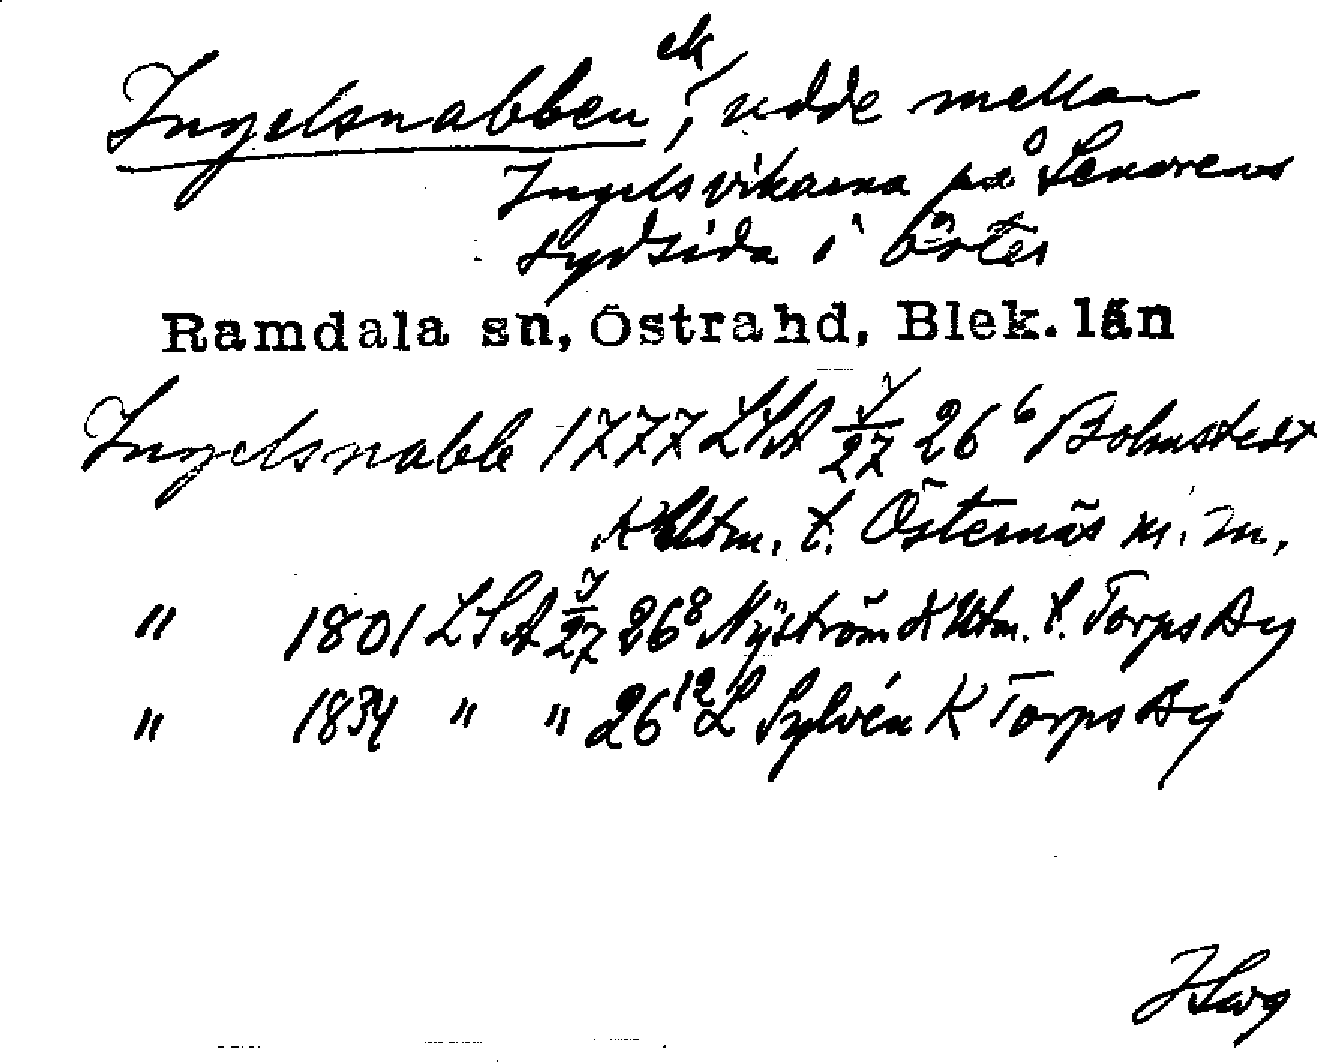 ek
Ingelsnabben, udde mellan
Ingelsvikarna på Senorens
sydsida i öster
Ramdala sn, Östrahd, Blek. län
Ingelsnabbe 1777 LSA V/27 26⁶ Bolmstedt
K Utm. t. Östernäs m. m.
" 1801 LSA V/27 26⁸ Nyström K Utm. t. Torps By
" 1834 " " 26¹² L Sylvén K Torps By